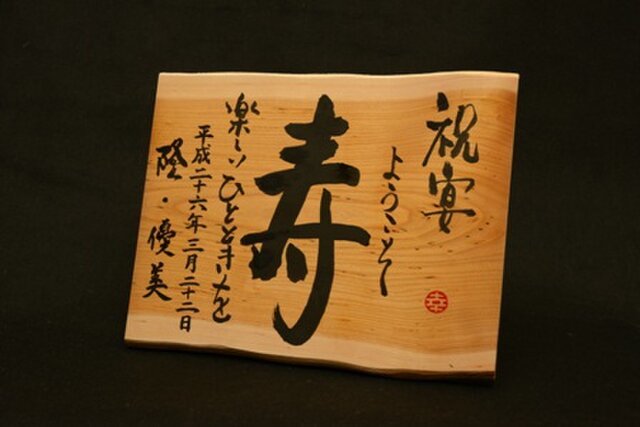 祝宴
ようこそ
寿
楽しいひとときを
平成二十六年三月二十二日
隆・優美
幸